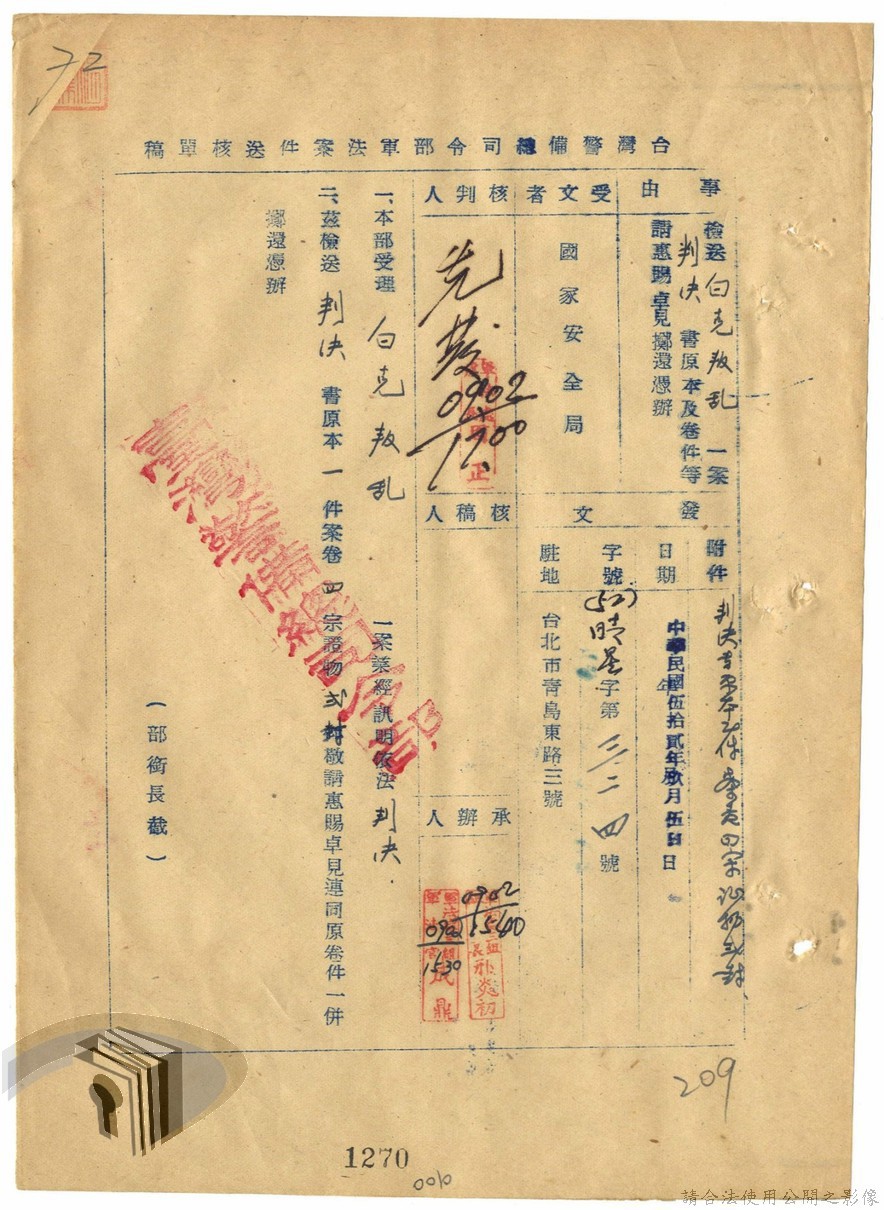 72
台灣警備總司令部軍法案件送核單稿
事由
檢送白克叛乱一案
判決書原本及卷件等
請惠賜卓見擲還憑辦
受文者
國家安全局
核判人
先發
0902
1700
發文
附件
判決書原本壹件案卷四宗证物弍封
日期
中華民國伍拾貳年玖月伍日
字號
(52)晴星字第三二四號
駐地
台北市青島東路三號
核稿人
承辦人
0902
1540
0902
1530
一、本部受理白克叛乱一案業經訊明依法判決.
二、茲檢送判決書原本一件案卷四宗證物弍封敬請惠賜卓見連同原卷件一併
擲還憑辦
(部銜長截)
臺灣警備總司令部
209
1270
0010
請合法使用公開之影像